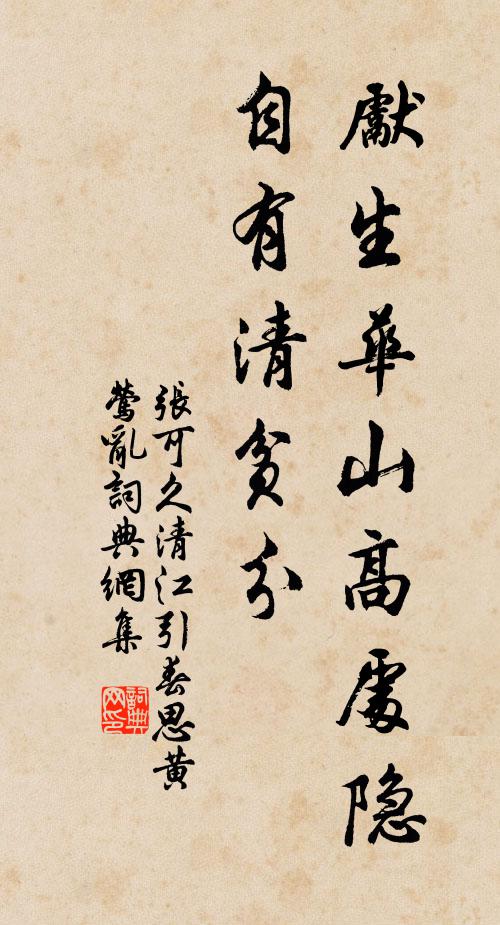 獻生華山高處隱
自有清貧分
張可久清江引春思黃
鶯亂詞典網集
詞典網印